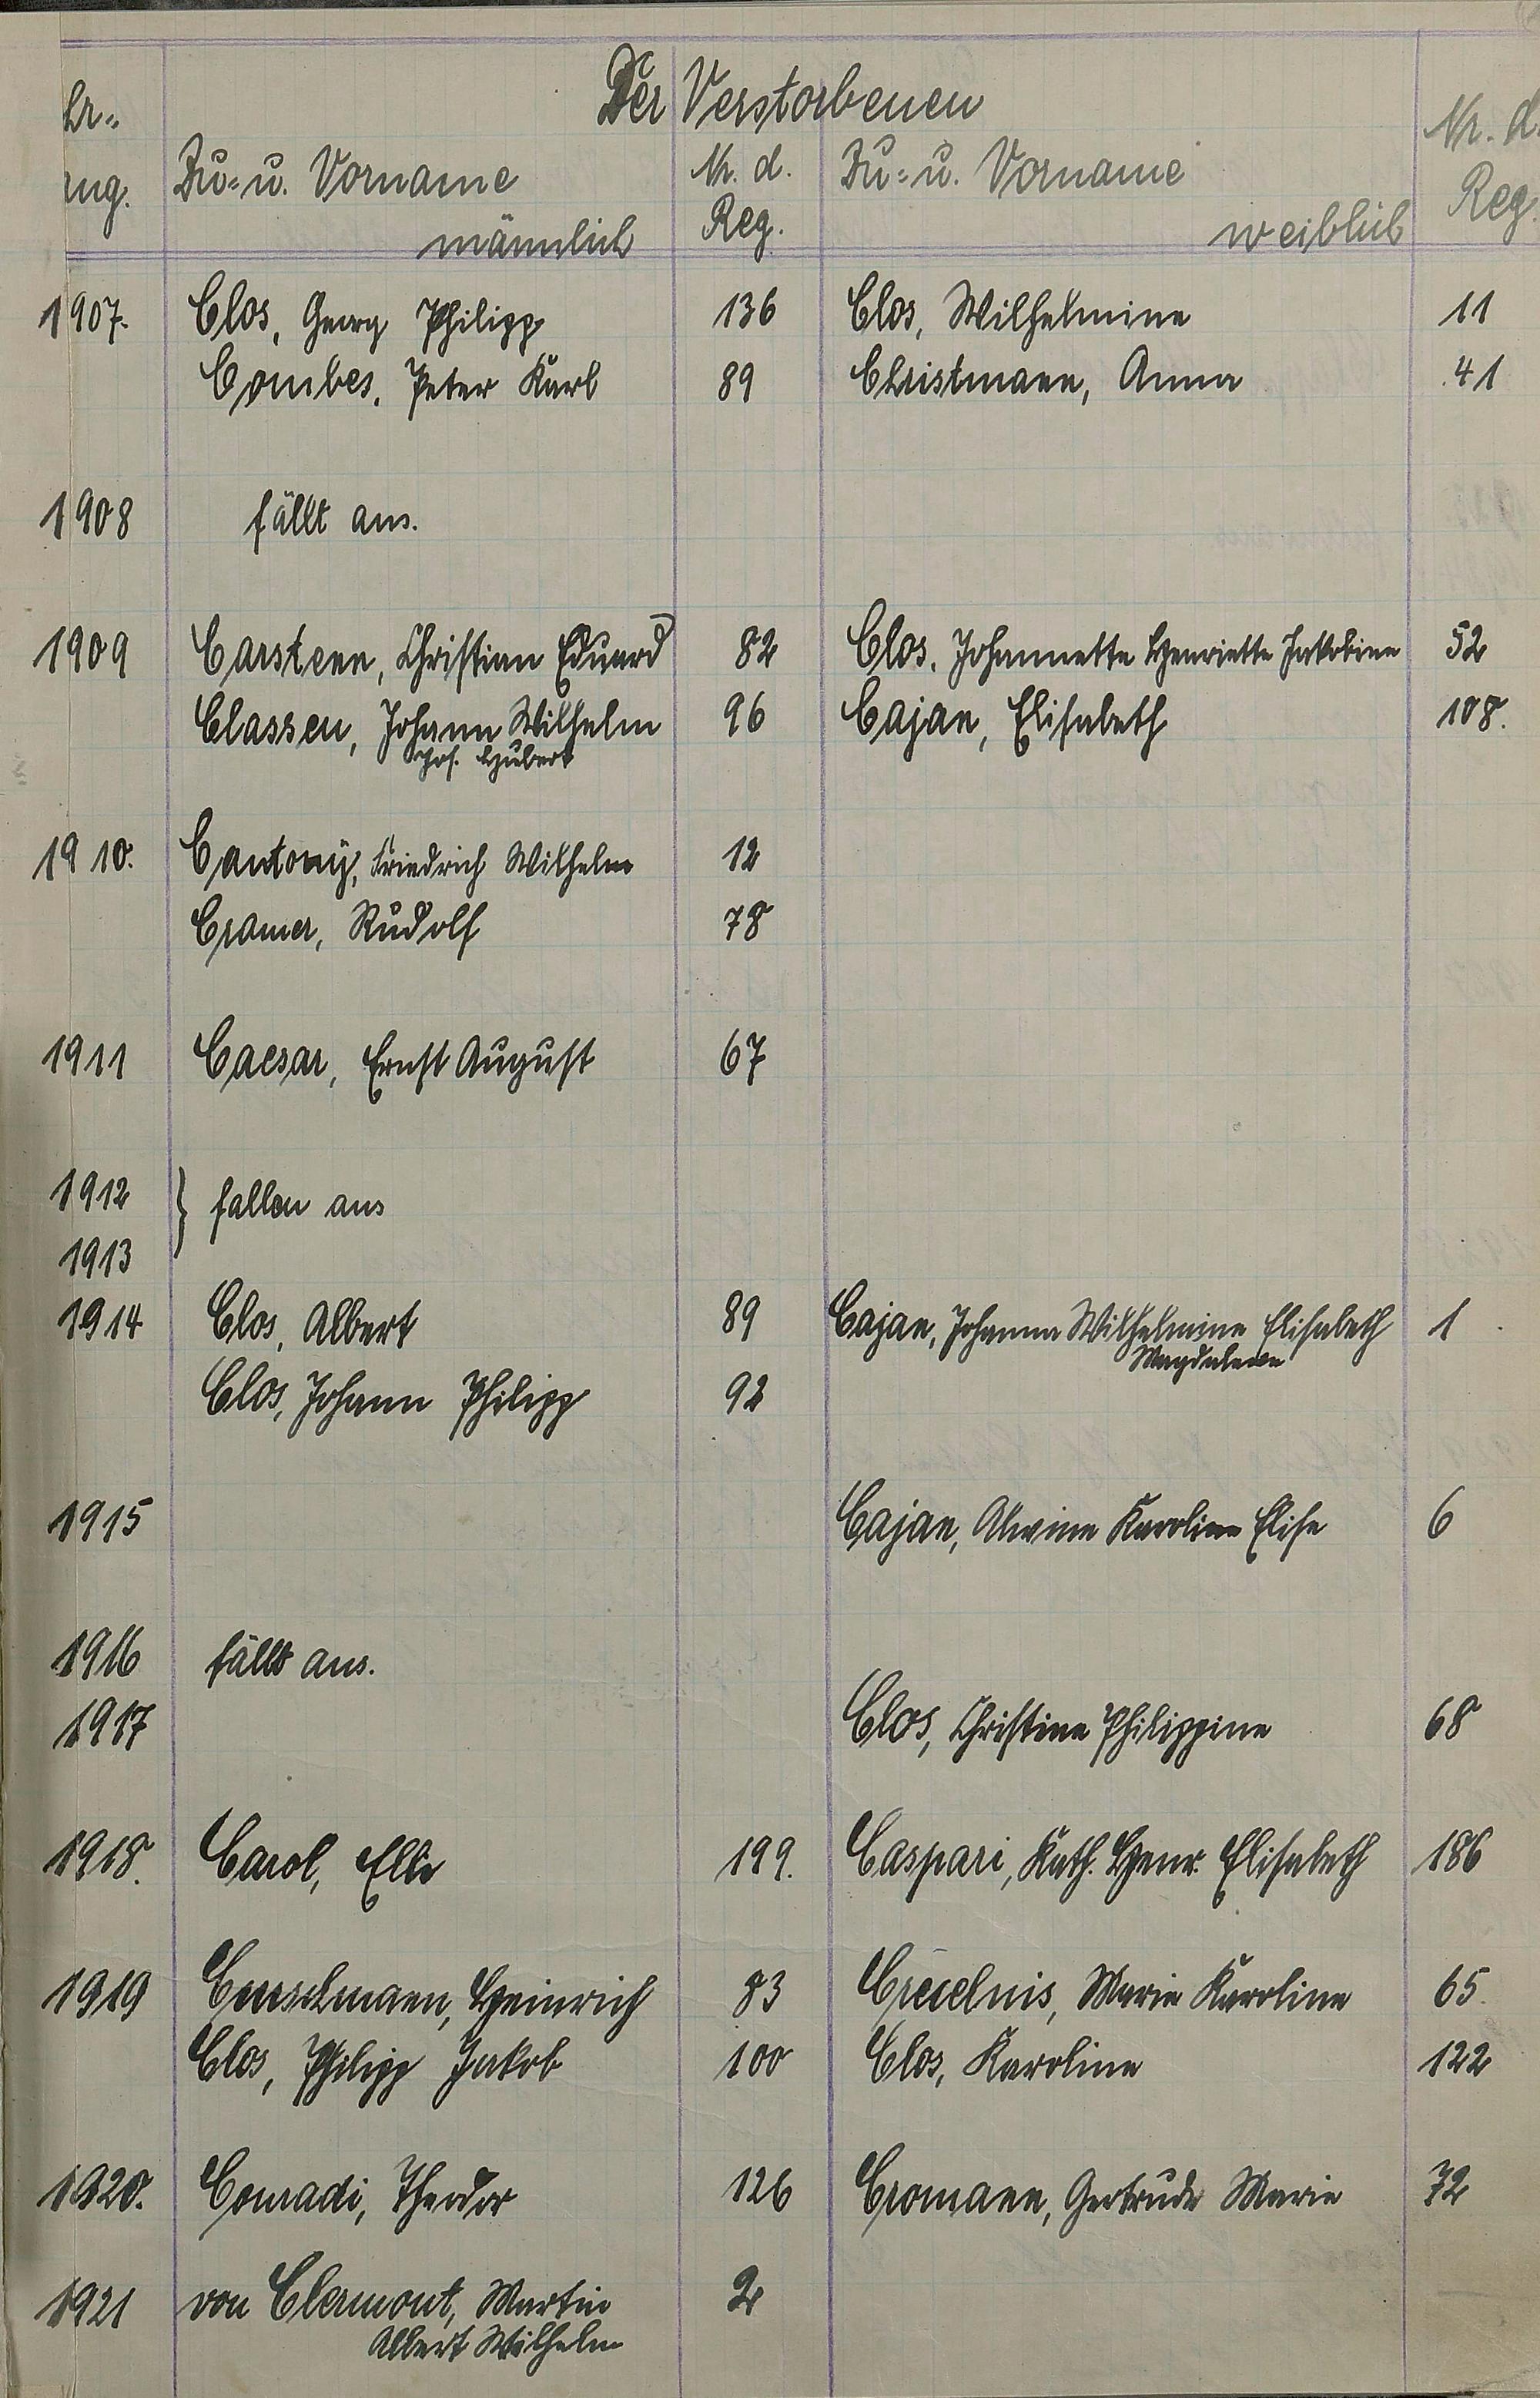 Der Verstorbenen
hr-
ung.
Zu- u. Vorname
männlich
Nr. d.
Reg.
Zu- u. Vorname
weiblich
Nr. d.
Reg.
1907. Clos, Georg Philipp 136 Clos, Wilhelmine 11
Combes, Peter Karl 89 Christmann, Anna 41
1908 fällt aus.
1909 Carstenn, Christian Eduard 82 Clos, Johannette Henriette Jakobine 52
Classen, Johann Wilhelm 96 Cajan, Elisabeth 108.
Jos. Hubert
1910. Cantony, Friedrich Wilhelm 12
Cramer, Rudolf 78
1911 Caesar, Ernst August 67
1912 } fallen aus
1913
1914 Clos, Albert 89 Cajan, Johanna Wilhelmine Elisabeth 1
Magdalena
Clos, Johann Philipp 92
1915 Cajan, Alwine Karoline Elise 6
1916 fällt aus.
1917 Clos, Christine Philippine 68
1918. Carol, 199. Caspari, Kath. Henr. Elisabeth 186
1919 Heinrich 83 Marie Karoline 65.
Clos, Philipp Jakob 100 Clos, Karoline 122
1920. Conradi, Theodor 126 Cromann, Gertrude Marie 72
1921 von Clermont, Martin 2
Albert Wilhelm